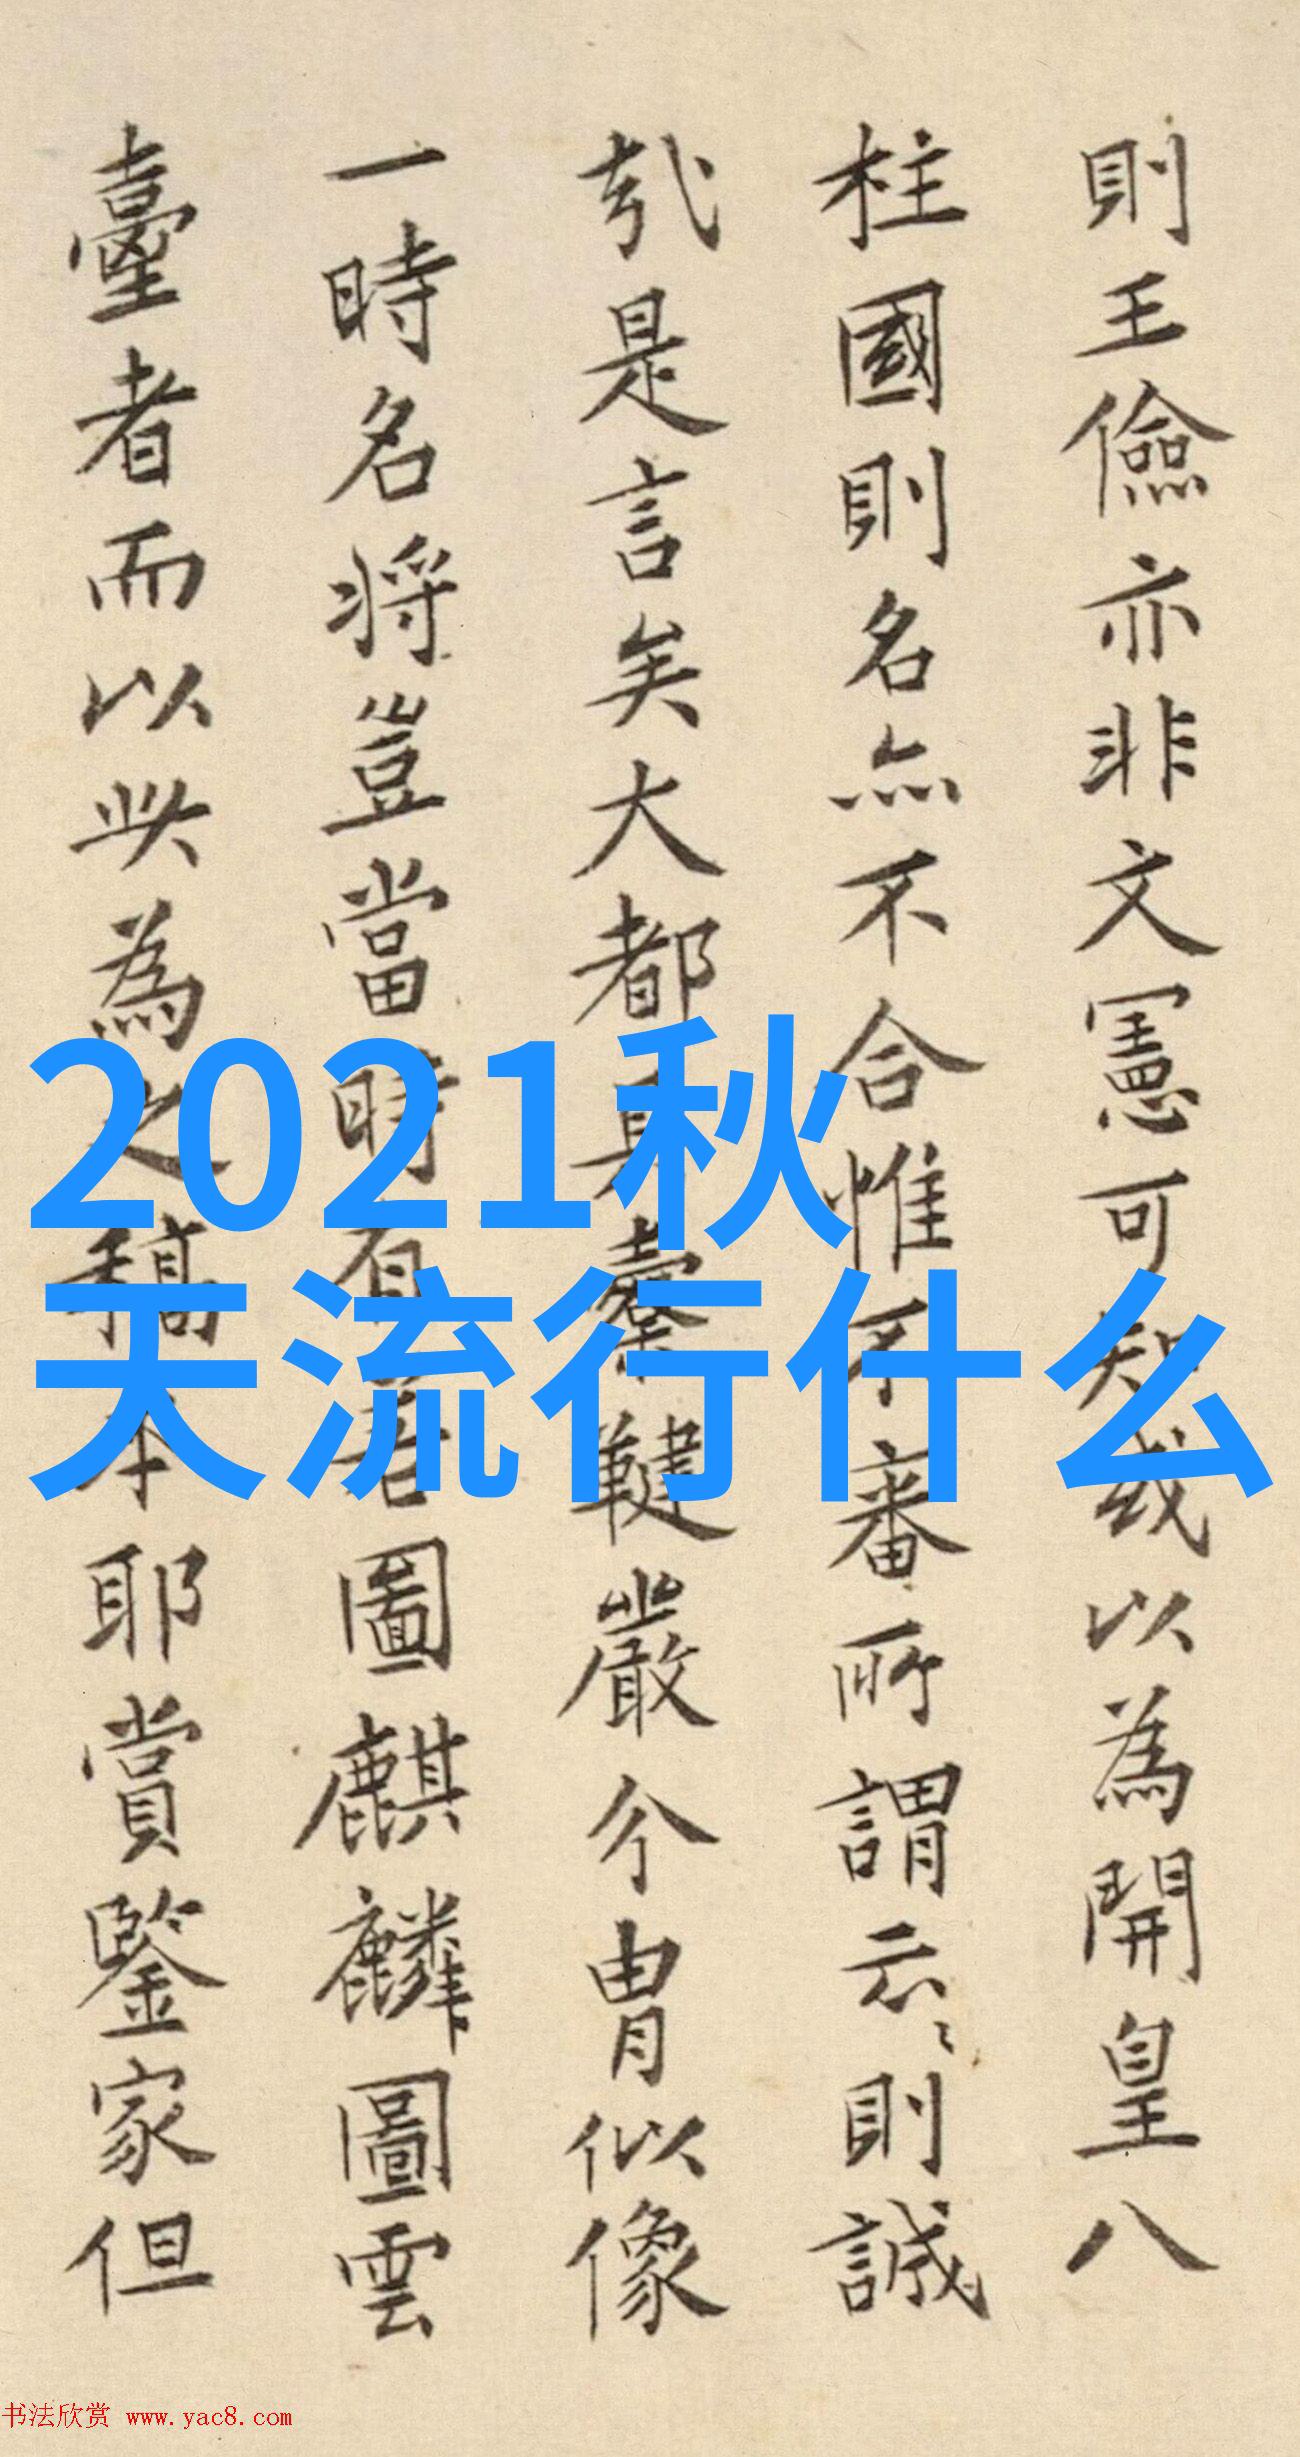 則王儉亦非文憲可知或以為開皇八
柱國則名亦不合惟不審所謂云〻則誠
哉是言矣大都具櫜鞬嚴介冑似像
一時名将豈當時有若圖麒麟圖雲
臺者而以此為之稿本耶賞鑒家但
2021秋
天流行什么
书法欣赏 www.yac8.com